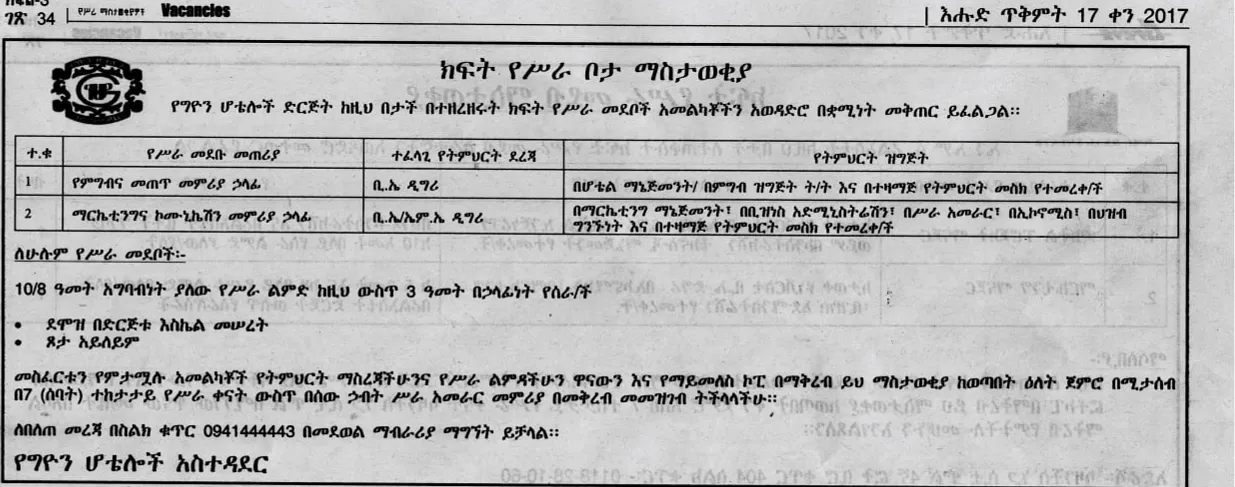 ገጽ 34 | የሥራ ማስታወቂያዎች Vacancies | እሑድ ጥቅምት 17 ቀን 2017
ክፍት የሥራ ቦታ ማስታወቂያ
የግዮን ሆቴሎች ድርጅት ከዚህ በታች በተዘረዘሩት ክፍት የሥራ መደቦች አመልካቾችን አወዳድሮ በቋሚነት መቅጠር ይፈልጋል፡፡
ተ.ቁ የሥራ መደቡ መጠሪያ ተፈላጊ የትምህርት ደረጃ የትምህርት ዝግጅት
1 የምግብና መጠጥ መምሪያ ኃላፊ ቢ.ኤ ዲግሪ በሆቴል ማኔጅመንት/ በምግብ ዝግጅት ት/ት እና በተዛማጅ የትምህርት መስክ የተመረቀ/ች
2 ማርኬቲንግና ኮሙኒኬሽን መምሪያ ኃላፊ ቢ.ኤ/ኤም.ኤ ዲግሪ በማርኬቲንግ ማኔጅመንት፣ በቢዝነስ አድሚኒስትሬሽን፣ በሥራ አመራር፣ በኢኮኖሚስ፣ በህዝብ
ግንኙነት እና በተዛማጅ የትምህርት መስክ የተመረቀ/ች
ለሁሉም የሥራ መደቦች፡-
10/8 ዓመት አግባብነት ያለው የሥራ ልምድ ከዚህ ውስጥ 3 ዓመት በኃላፊነት የሰራ/ች
• ደሞዝ በድርጅቱ እስኬል መሠረት
• ጾታ አይለይም
መስፈርቱን የምታሟሉ አመልካቾች የትምህርት ማስረጃችሁንና የሥራ ልምዳችሁን ዋናውን እና የማይመለስ ኮፒ በማቅረብ ይህ ማስታወቂያ ከወጣበት ዕለት ጀምሮ በሚታሰብ
በ7 (ሰባት) ተከታታይ የሥራ ቀናት ውስጥ በሰው ኃብት ሥራ አመራር መምሪያ በመቅረብ መመዝገብ ትችላላችሁ፡፡
ለበለጠ መረጃ በስልክ ቁጥር 0941444443 በመደወል ማብራሪያ ማግኘት ይቻላል፡፡
የግዮን ሆቴሎች አስተዳደር